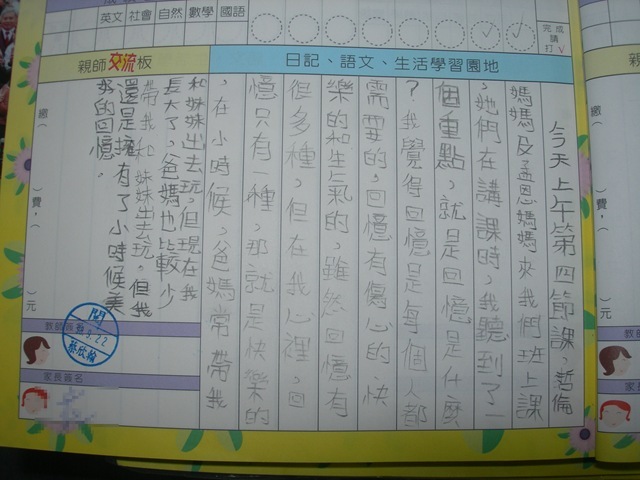 國語
數學
自然
社會
英文
完成
請
打√
日記、語文、生活學習園地
親師交流板
今天上午第四節課,哲倫
媽媽及孟恩媽媽來我們班上課
,她們在講課時,我聽到了一
個重點,就是回憶是什麼
?我覺得回憶是每個人都
需要的,回憶有傷心的、快
樂的和生氣的,雖然回憶有
但多種,但在我心裡,回
憶只有一種,那就是快樂的
,在小時候,爸媽常帶我
和妹妹出去玩,但現在我
長大了,爸媽也比較少
帶我和妹妹出去玩。但我
還是擁有了小時候美
好的回憶。
繳(
)費,(
)元
教師簽名
閱
9.22
蔡欣倫
家長簽名
繳(
)費,(
)元